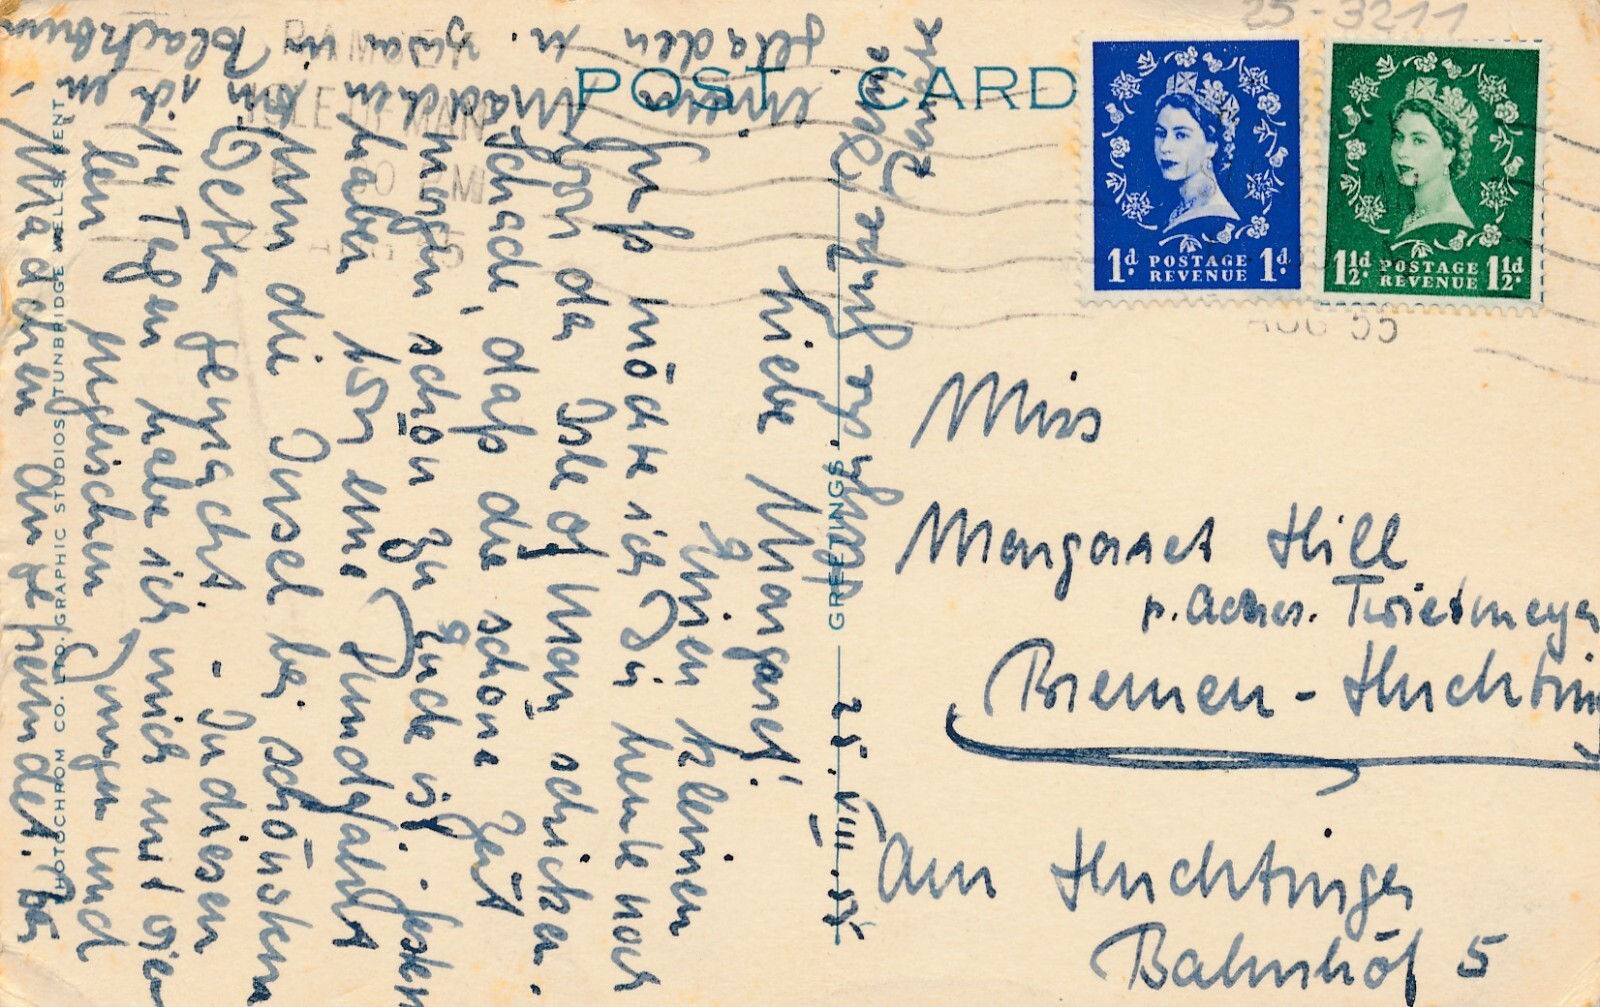 25-3211
POST CARD
1d. POSTAGE REVENUE 1d.
1½d. POSTAGE REVENUE 1½d.
RAMSEY
ISLE OF MAN
AUG 55
GREETINGS.
PHOTOCHROM CO. LTD. GRAPHIC STUDIOS TUNBRIDGE WELLS, KENT
25. VIII. 55
Liebe Margaret!
Einen kleinen
Gruß möchte ich Dir heute noch
von der Isle of Man schicken.
Schade, daß die schöne Zeit
morgen schon zu Ende ist. Gestern
haben wir eine Rundfahrt
um die Insel bei schönstem
Wetter gemacht. - In diesen
14 Tagen habe ich mich mit vielen
englischen Jungen und
Mädchen angefreundet. Bei
einem
Mädchen bin ich in
geladen u. zwar in Blackburn
Deine
Miss
Margaret Hill
Bremen-Huchting
Am Huchtinger
Bahnhof 5